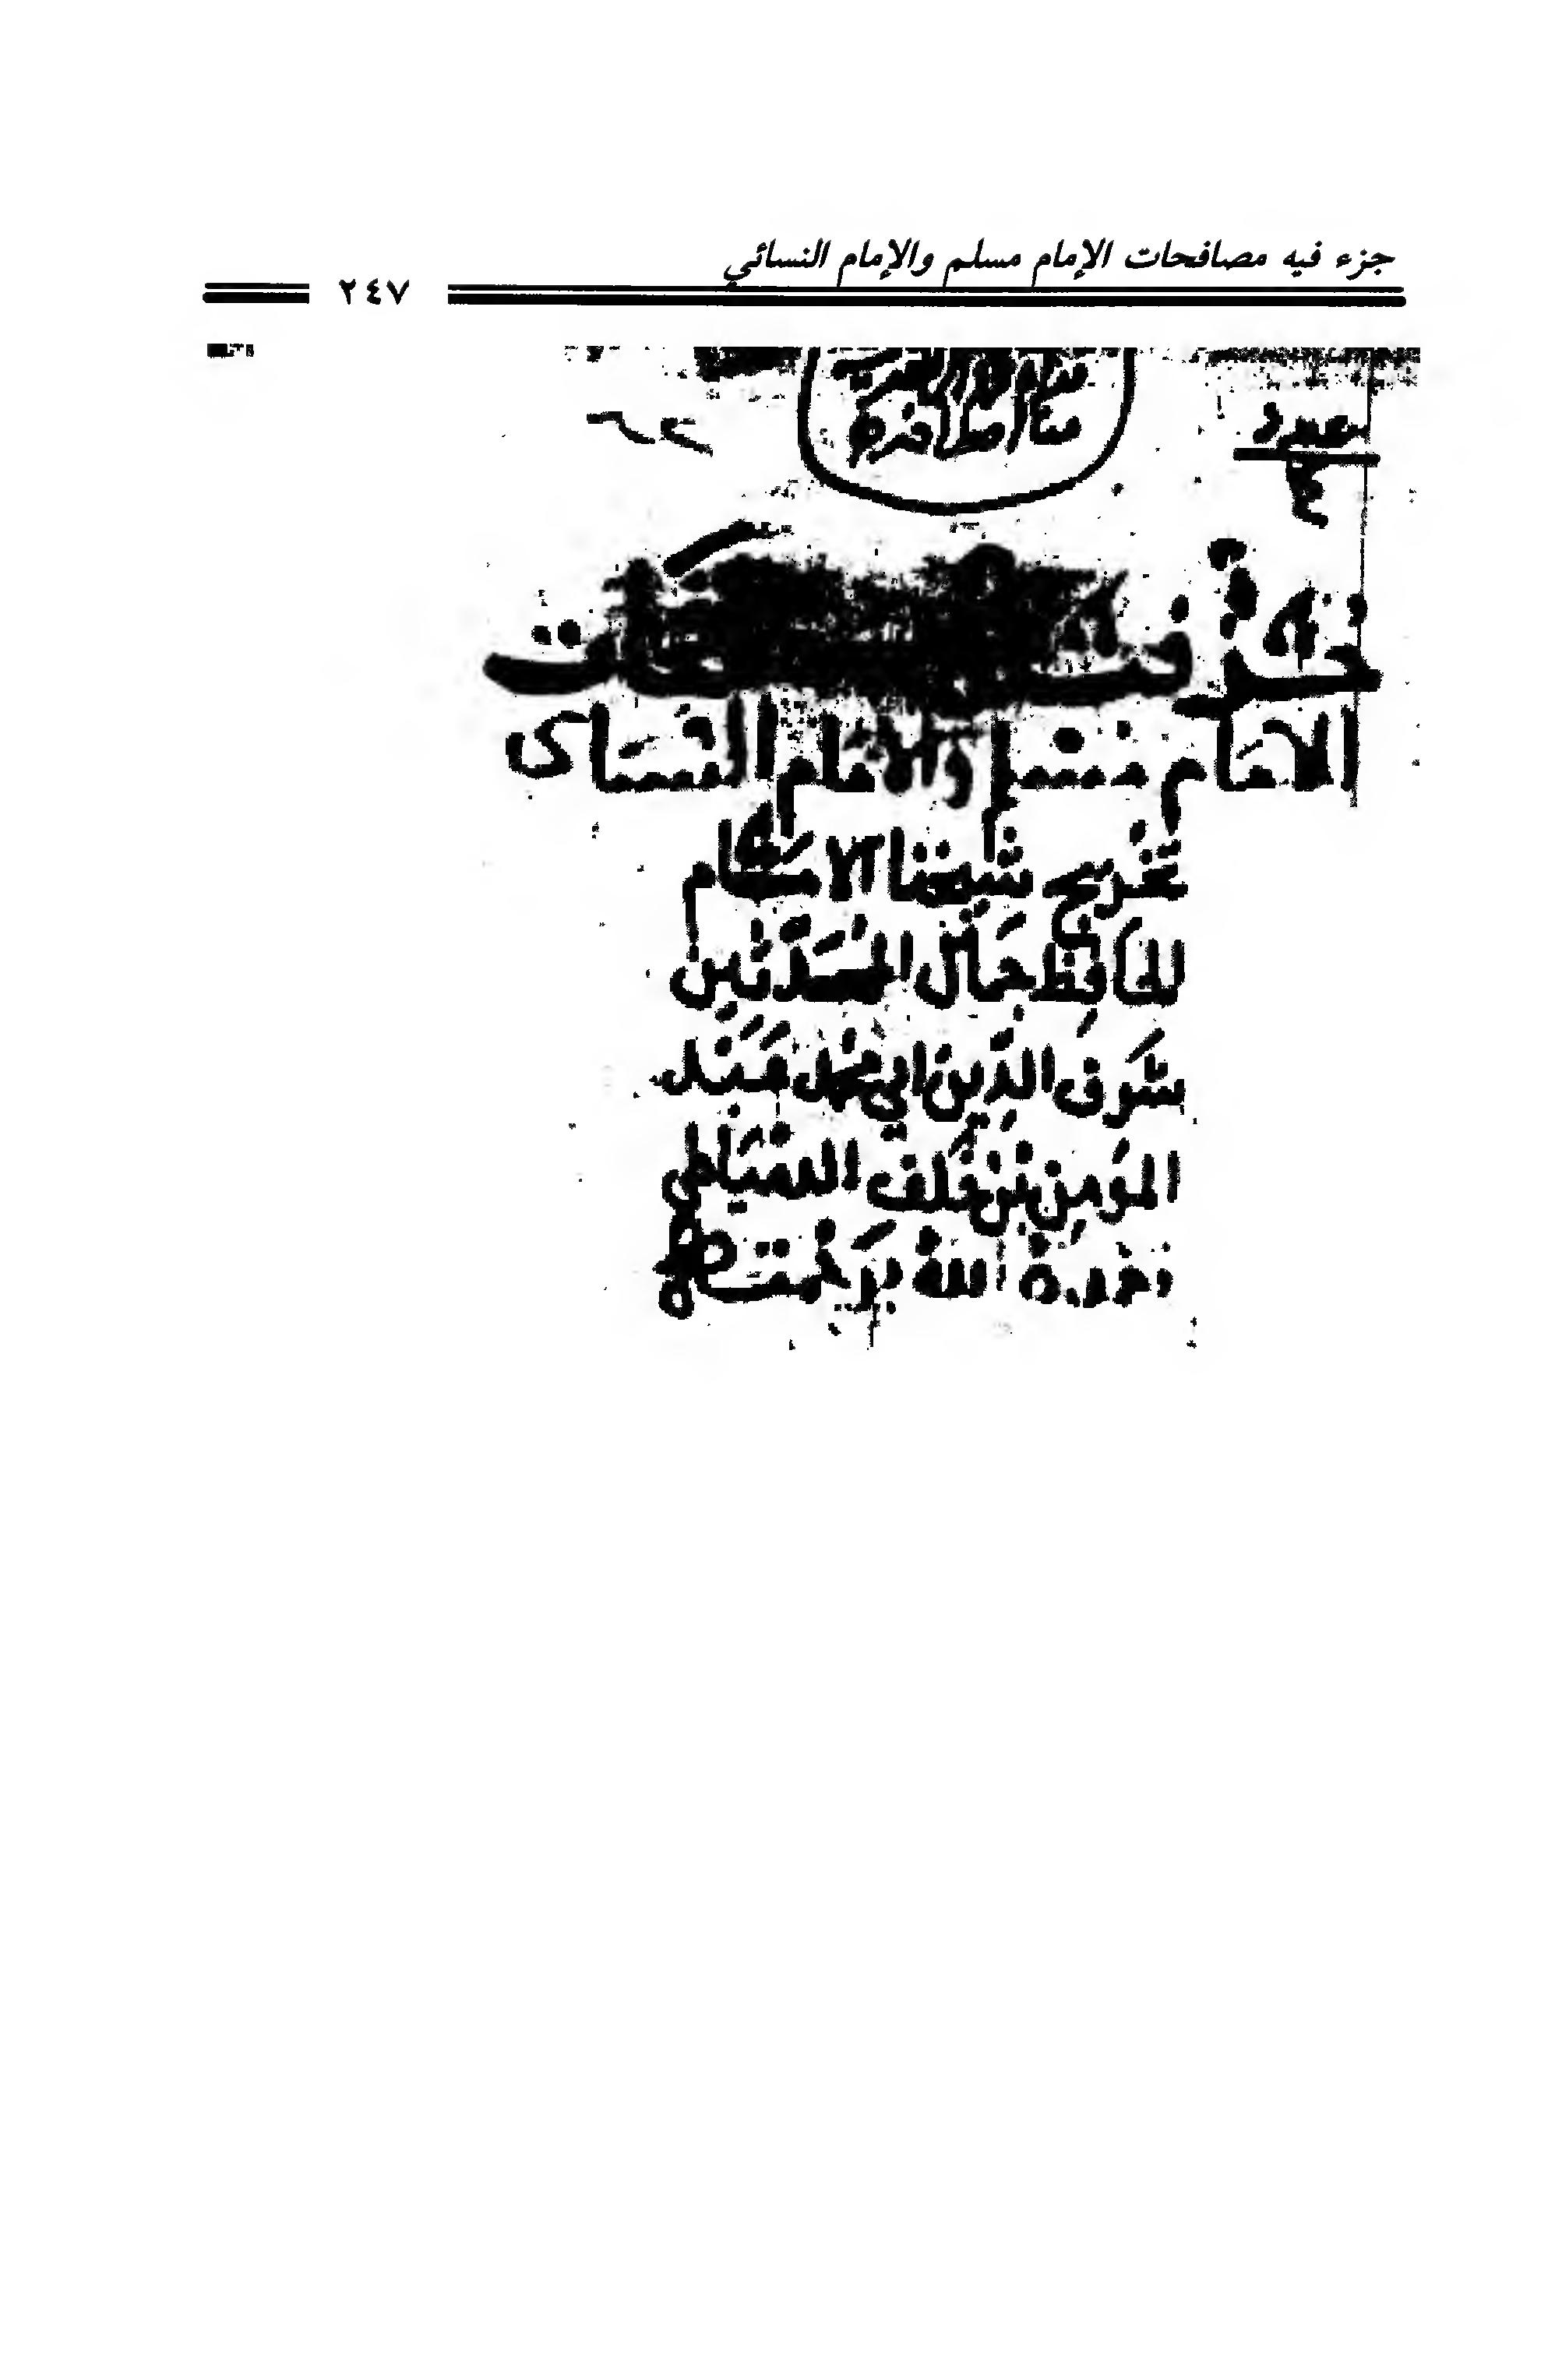 جزء فيه مصافحات الإمام مسلم والإمام النسائي
٢٤٧
عدد
٤
جزء فيه مصافحات
الامام مسلم والامام النسائى
تخريج شيخنا الامام
الحافظ جمال المحدثين
شرف الدين ابي محمد عبد
المؤمن بن خلف الدمياطي
تغمده الله برحمته